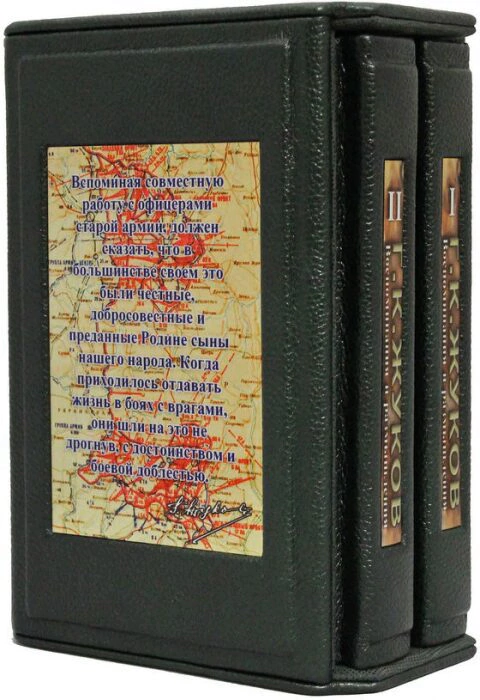 Вспоминая совместную
работу с офицерами
старой армии, должен
сказать, что в
большинстве своем это
были честные,
добросовестные и
преданные Родине сыны
нашего народа. Когда
приходилось отдавать
жизнь в боях с врагами,
они шли на это не
дрогнув, с достоинством и
боевой доблестью.
II
Г.К. ЖУКОВ
Воспоминания и размышления
I
Г.К. ЖУКОВ
Воспоминания и размышления